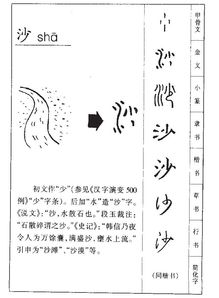 沙 shā
初文作“少”（参见《汉字演变500
例》“少”字条）。后加“水”造“沙”字。
《说文》：“沙，水散石也。”段玉裁注：
“石散碎谓之沙。”《史记》：“韩信乃夜
令人为万馀囊，满盛沙，壅水上流。”
引申为“沙滩”、“沙漠”等。
沙
沙
沙
沙
（同楷书）
甲骨文
金文
小篆
隶书
楷书
草书
行书
简化字